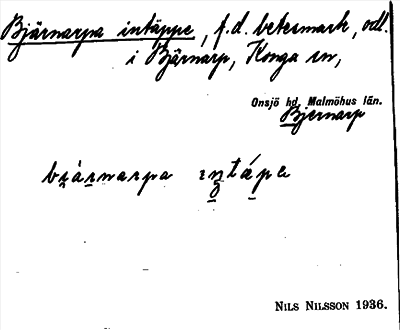 Bjärnarpa intäppe, f.d. betesmark, odl.
i Bjärnarp, Konga sn,
Onsjö hd, Malmöhus län.
Bjernarp
bjärnarpa ıntápa
NILS NILSSON 1936.